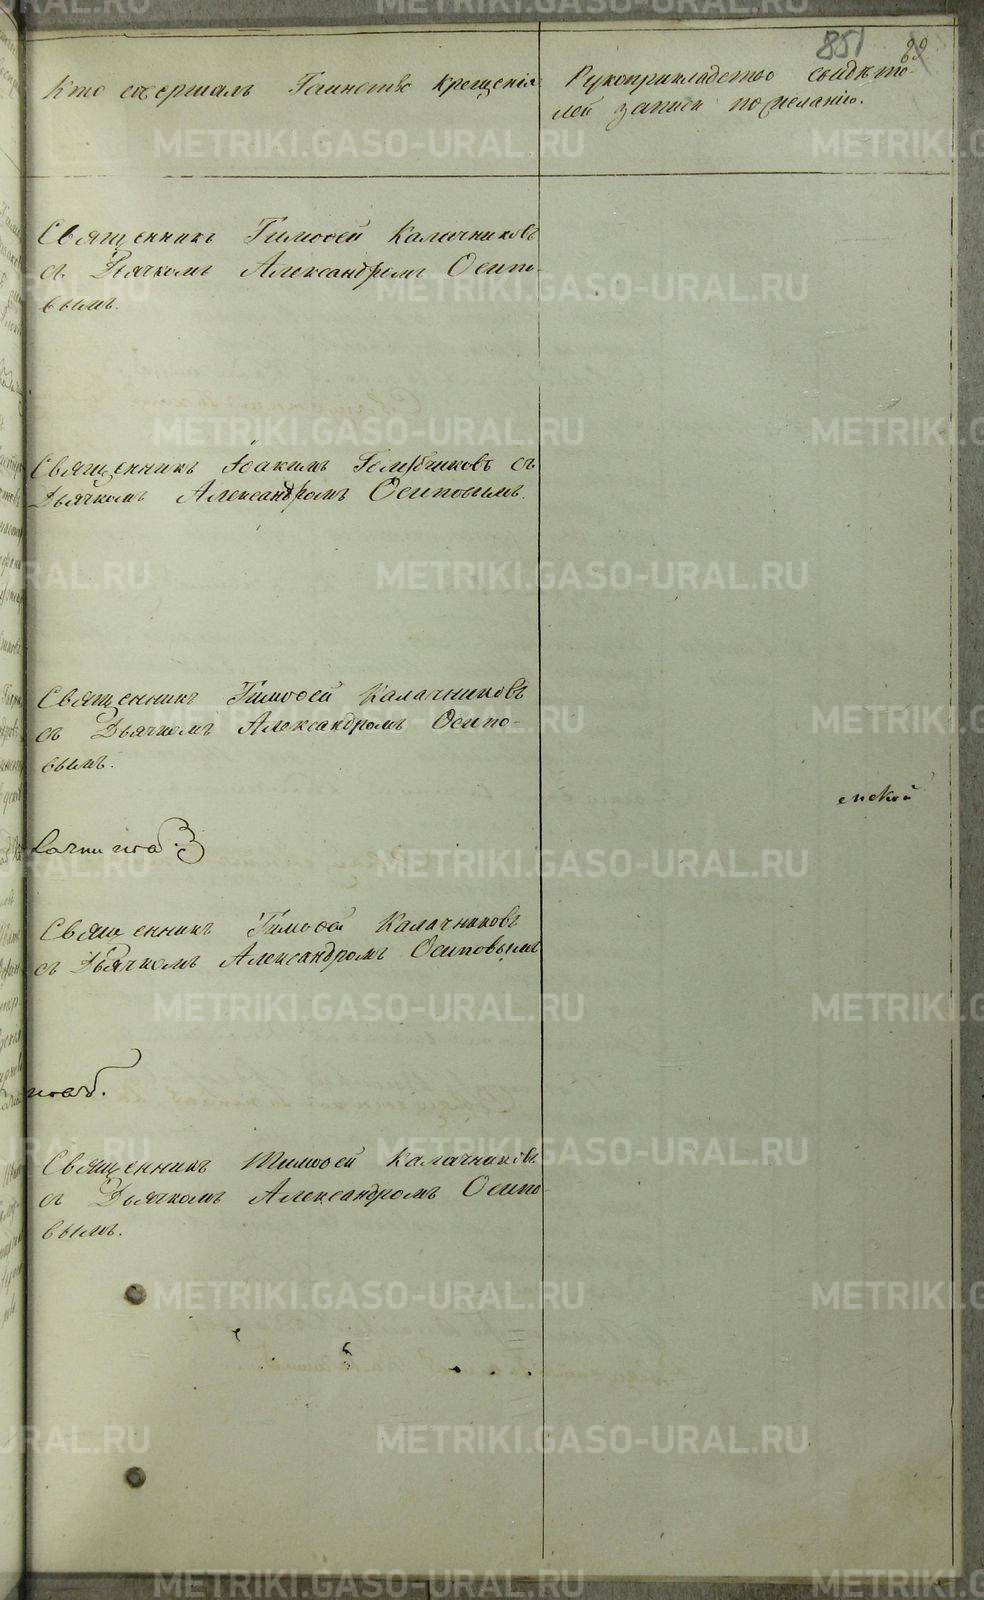 851
Кто совершалъ Таинство крещенія
Рукоприкладство свидѣте-
лей записи по желанію.
Священникъ Тимоѳей Калачниковъ
съ Дьячкомъ Александромъ Осипо-
вымъ.
Священникъ Іоакимъ Голубчиковъ съ
Дьячкомъ Александромъ Осиповымъ.
Священникъ Тимоѳей Калачниковъ
съ Дьячкомъ Александромъ Осипо-
вымъ.
енской
Священникъ Тимоѳей Калачниковъ
съ Дьячкомъ Александромъ Осиповымъ
Священникъ Тимоѳей Калачниковъ
съ Дьячкомъ Александромъ Осипо-
вымъ.
METRIKI.GASO-URAL.RU